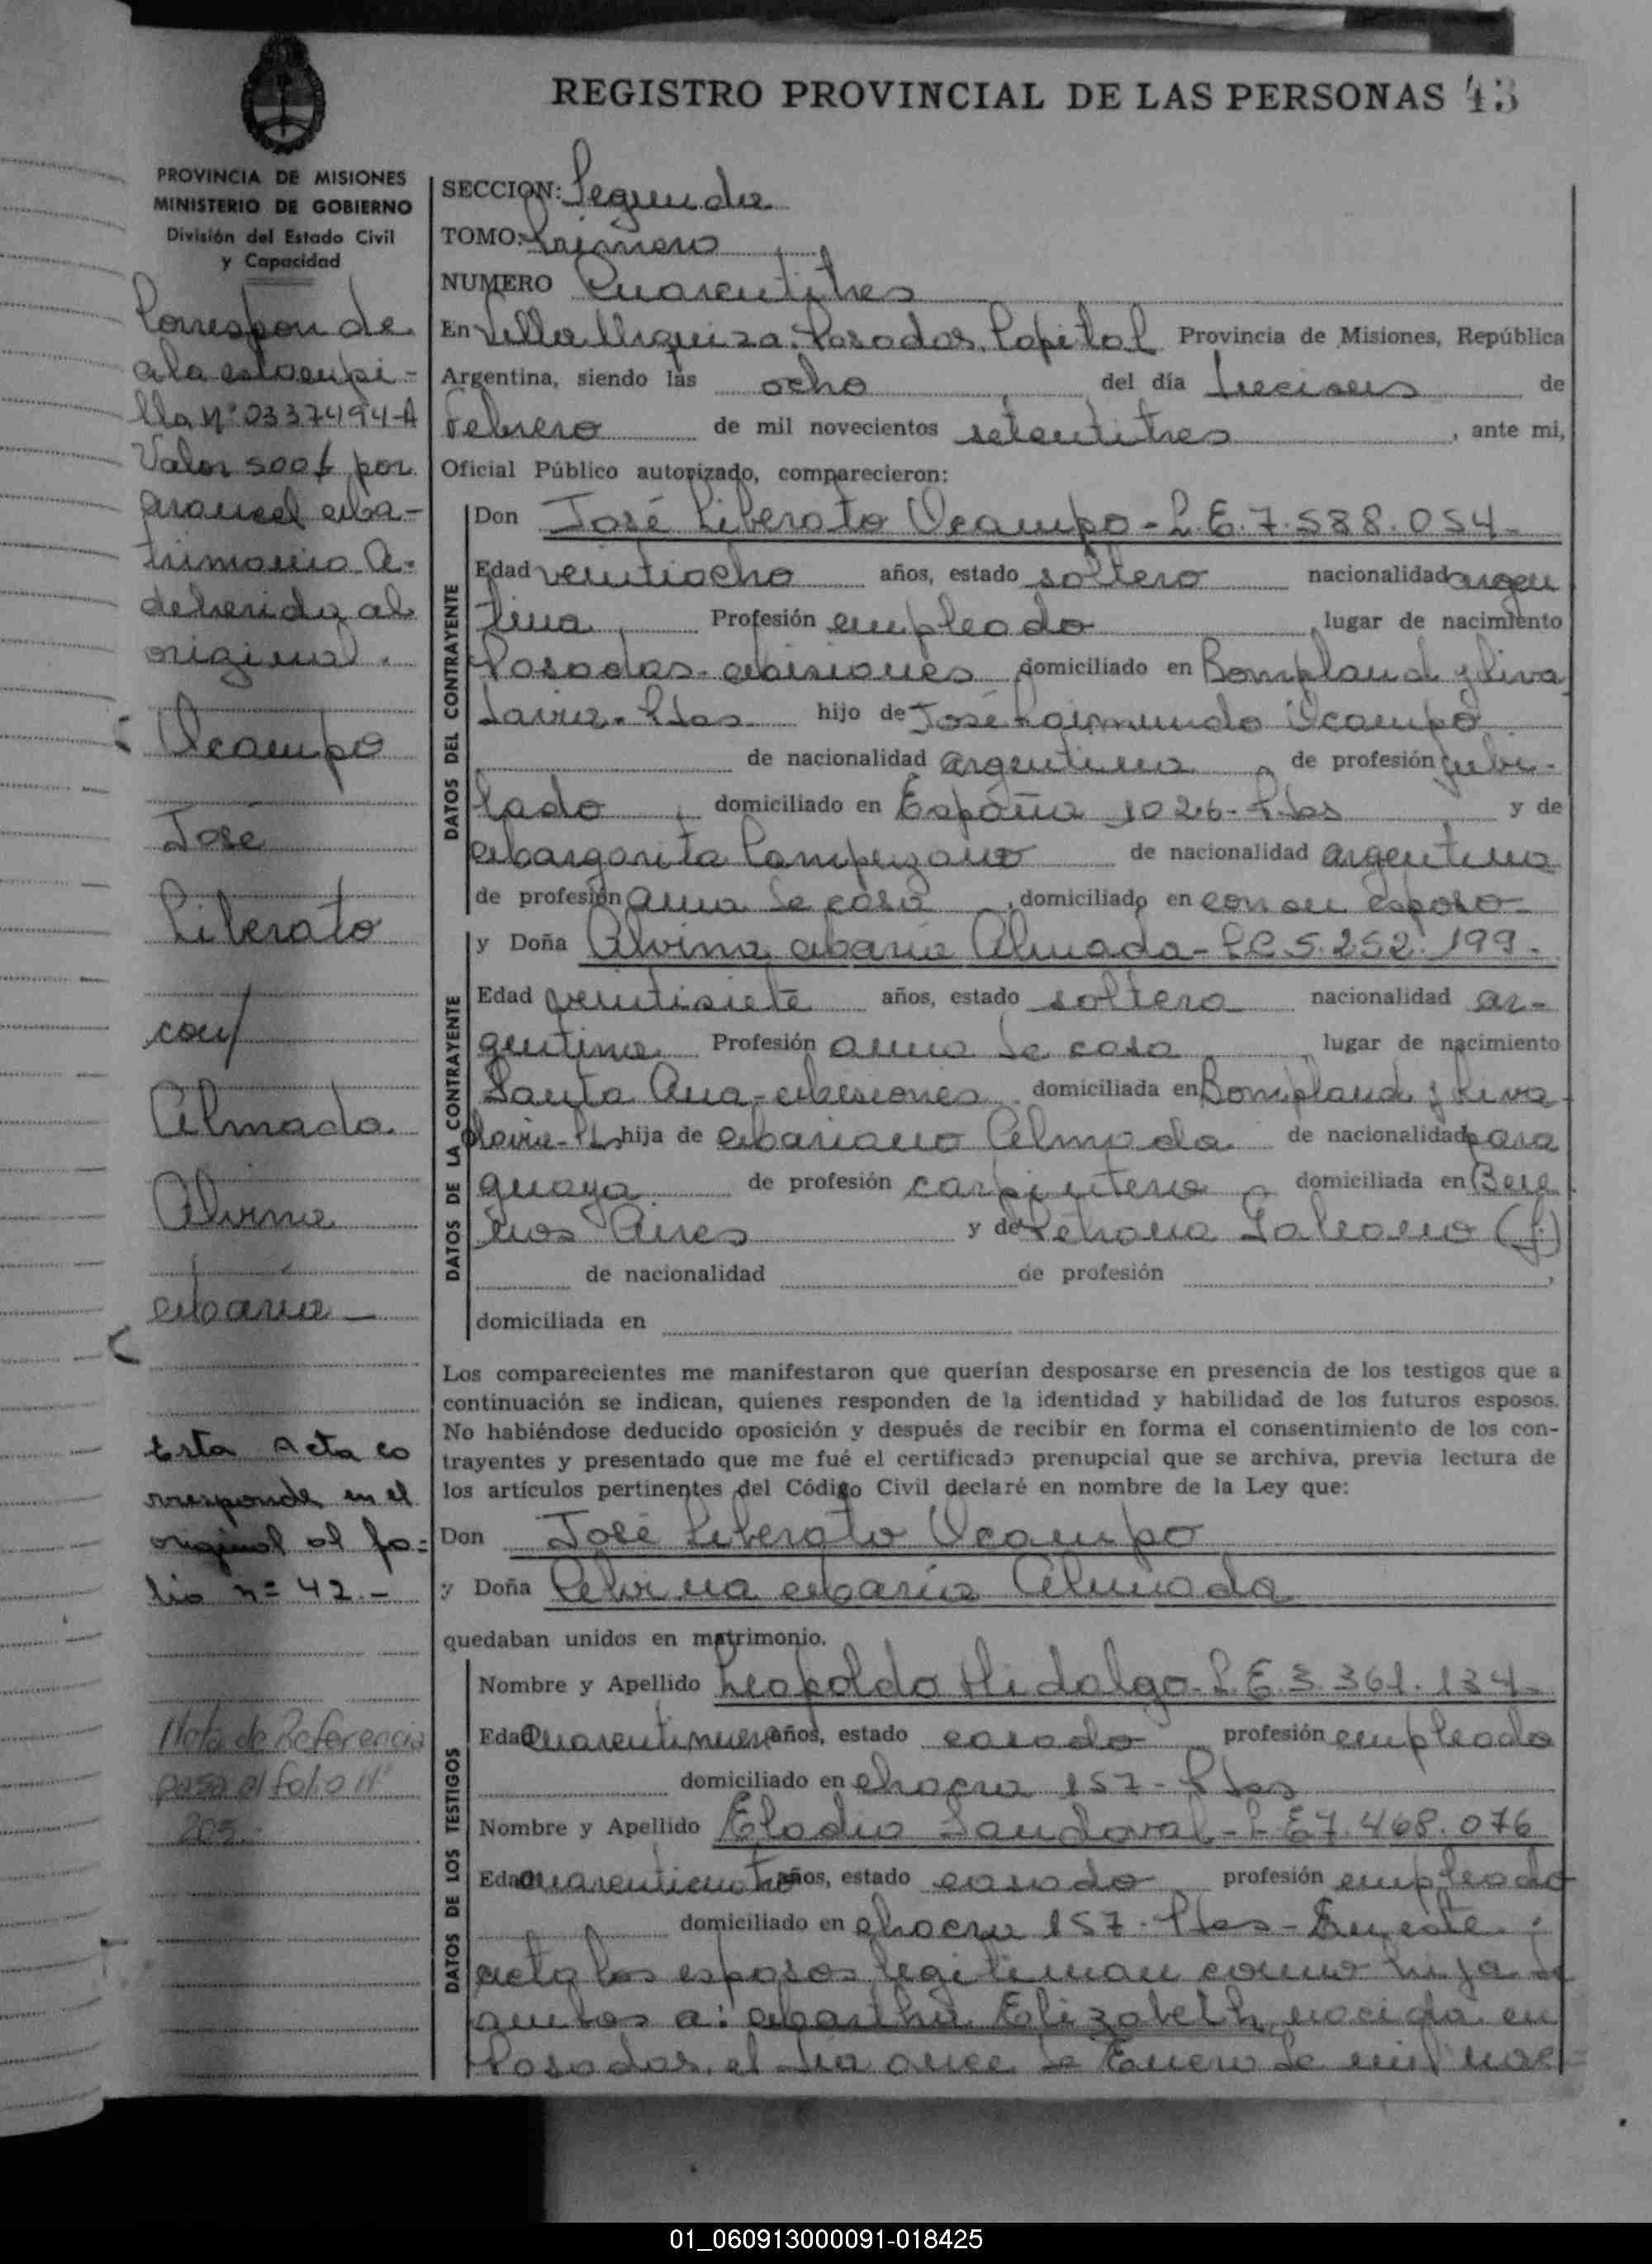 REGISTRO PROVINCIAL DE LAS PERSONAS 43
PROVINCIA DE MISIONES
MINISTERIO DE GOBIERNO
División del Estado Civil
y Capacidad
Corresponde
a la estampi-
lla Nº 0337494-A
Valor 500$ por
arancel Ma-
trimonio A-
deherida al
original.
Ocampo
José
Liberato
con/
Almada
Alvina
María —
Esta Acta co
rresponde en el
original al fo=
lio nº 42.-
Nota de Referencia
pasa al folio Nº
205.-
SECCION: Segunda
TOMO: Primero
NUMERO Cuarentitres
En Villa Urquiza. Posadas, Capital Provincia de Misiones, República
Argentina, siendo las ocho del día dieciseis de
Febrero de mil novecientos setentitres, ante mi,
Oficial Público autorizado, comparecieron:
DATOS DEL CONTRAYENTE
Don José Liberato Ocampo - L.E. 7.588.054-
Edad veintiocho años, estado soltero nacionalidad argen
tina, Profesión empleado, lugar de nacimiento
Posadas-Misiones domiciliado en Bompland y Riva
davia-Pdas hijo de José Raimundo Ocampo
de nacionalidad argentina, de profesión jubi-
lado, domiciliado en España 1026-Pdas y de
Margarita Campuzano de nacionalidad argentina
de profesión ama de casa, domiciliado en con su esposo-
DATOS DE LA CONTRAYENTE
y Doña Alvina María Almada - L.C 5.252.199-
Edad veintisiete años, estado soltera nacionalidad ar-
gentina Profesión ama de casa lugar de nacimiento
Santa Ana-Misiones domiciliada en Bompland y Riva
davia-Ps hija de Mariano Almada de nacionalidad para
guaya de profesión carpintero, domiciliada en Bue
nos Aires y de Petrona Galeano (f.)
de nacionalidad de profesión,
domiciliada en
Los comparecientes me manifestaron que querían desposarse en presencia de los testigos que a
continuación se indican, quienes responden de la identidad y habilidad de los futuros esposos.
No habiéndose deducido oposición y después de recibir en forma el consentimiento de los con-
trayentes y presentado que me fué el certificado prenupcial que se archiva, previa lectura de
los artículos pertinentes del Código Civil declaré en nombre de la Ley que:
Don José Liberato Ocampo
y Doña Alvina María Almada
quedaban unidos en matrimonio.
DATOS DE LOS TESTIGOS
Nombre y Apellido Leopoldo Hidalgo-L.E 3.361.134-
Edad Cuarentinueve años, estado casado profesión empleado
domiciliado en chacra 157-Pdas
Nombre y Apellido Eladio Sandoval-L E 7.468.076
Edad cuarenticuatro años, estado casado profesión empleado
domiciliado en chacra 157-Pdas-En este
acto los esposos legitiman como hija de
ambos a: Martha Elizabeth, nacida en
Posadas, el día once de Enero de mil nove
01_060913000091-018425